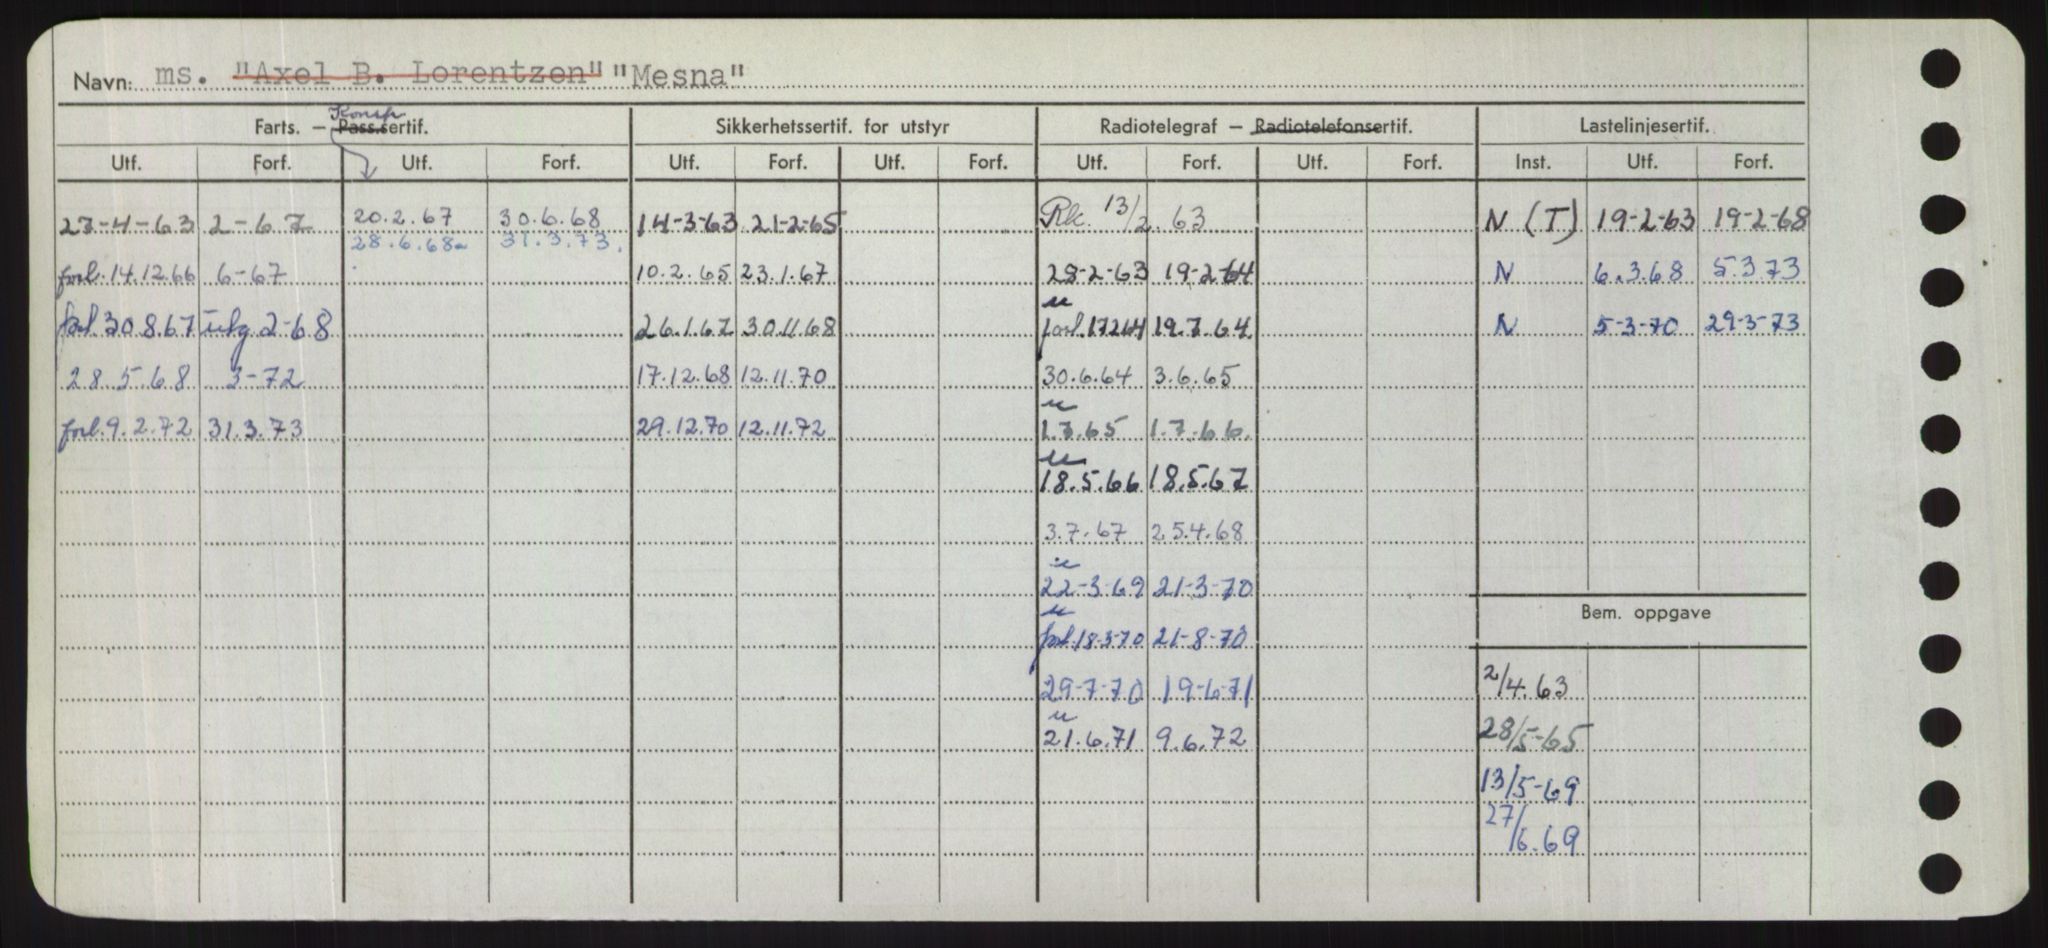 Navn: ms. "Axel B. Lorentzen" "Mesna"
Konstr.
Farts. – Pass.sertif. Sikkerhetssertif. for utstyr Radiotelegraf – Radiotelefonsertif. Lastelinjesertif.
Utf. Forf. Utf. Forf. Utf. Forf. Utf. Forf. Utf. Forf. Utf. Forf. Inst. Utf. Forf.
27-4-63 2-67 20.2.67 30.6.68 14-3-63 21-2-65 Rk. 13/2.63 N (T) 19-2-63 19-2-68
28.6.68 31.3.73.
forl. 14.12.66 6-67 10.2.65 23.1.67 28-2-63 19-2-64 N 6.3.68 5.3.73
u
forl. 30.8.67 utg 2-68 26.1.67 30.11.68 forl. 17264 19.7.64 N 5-3-70 29-3-73
28.5.68 3-72 17.12.68 12.11.70 30.6.64 3.6.65
u
forl. 9.2.72 31.3.73 29.12.70 12.11.72 1.7.65 1.7.66.
u
18.5.66 18.5.67
3.7.67 25.4.68
u
22-3-69 21-3-70
Bem. oppgave
u
forl. 18-3-70 21-8-70
29-7-70 19-6-71 2/4.63
u
21.6.71 9.6.72 28/5-65
13/5-69
27/6.69